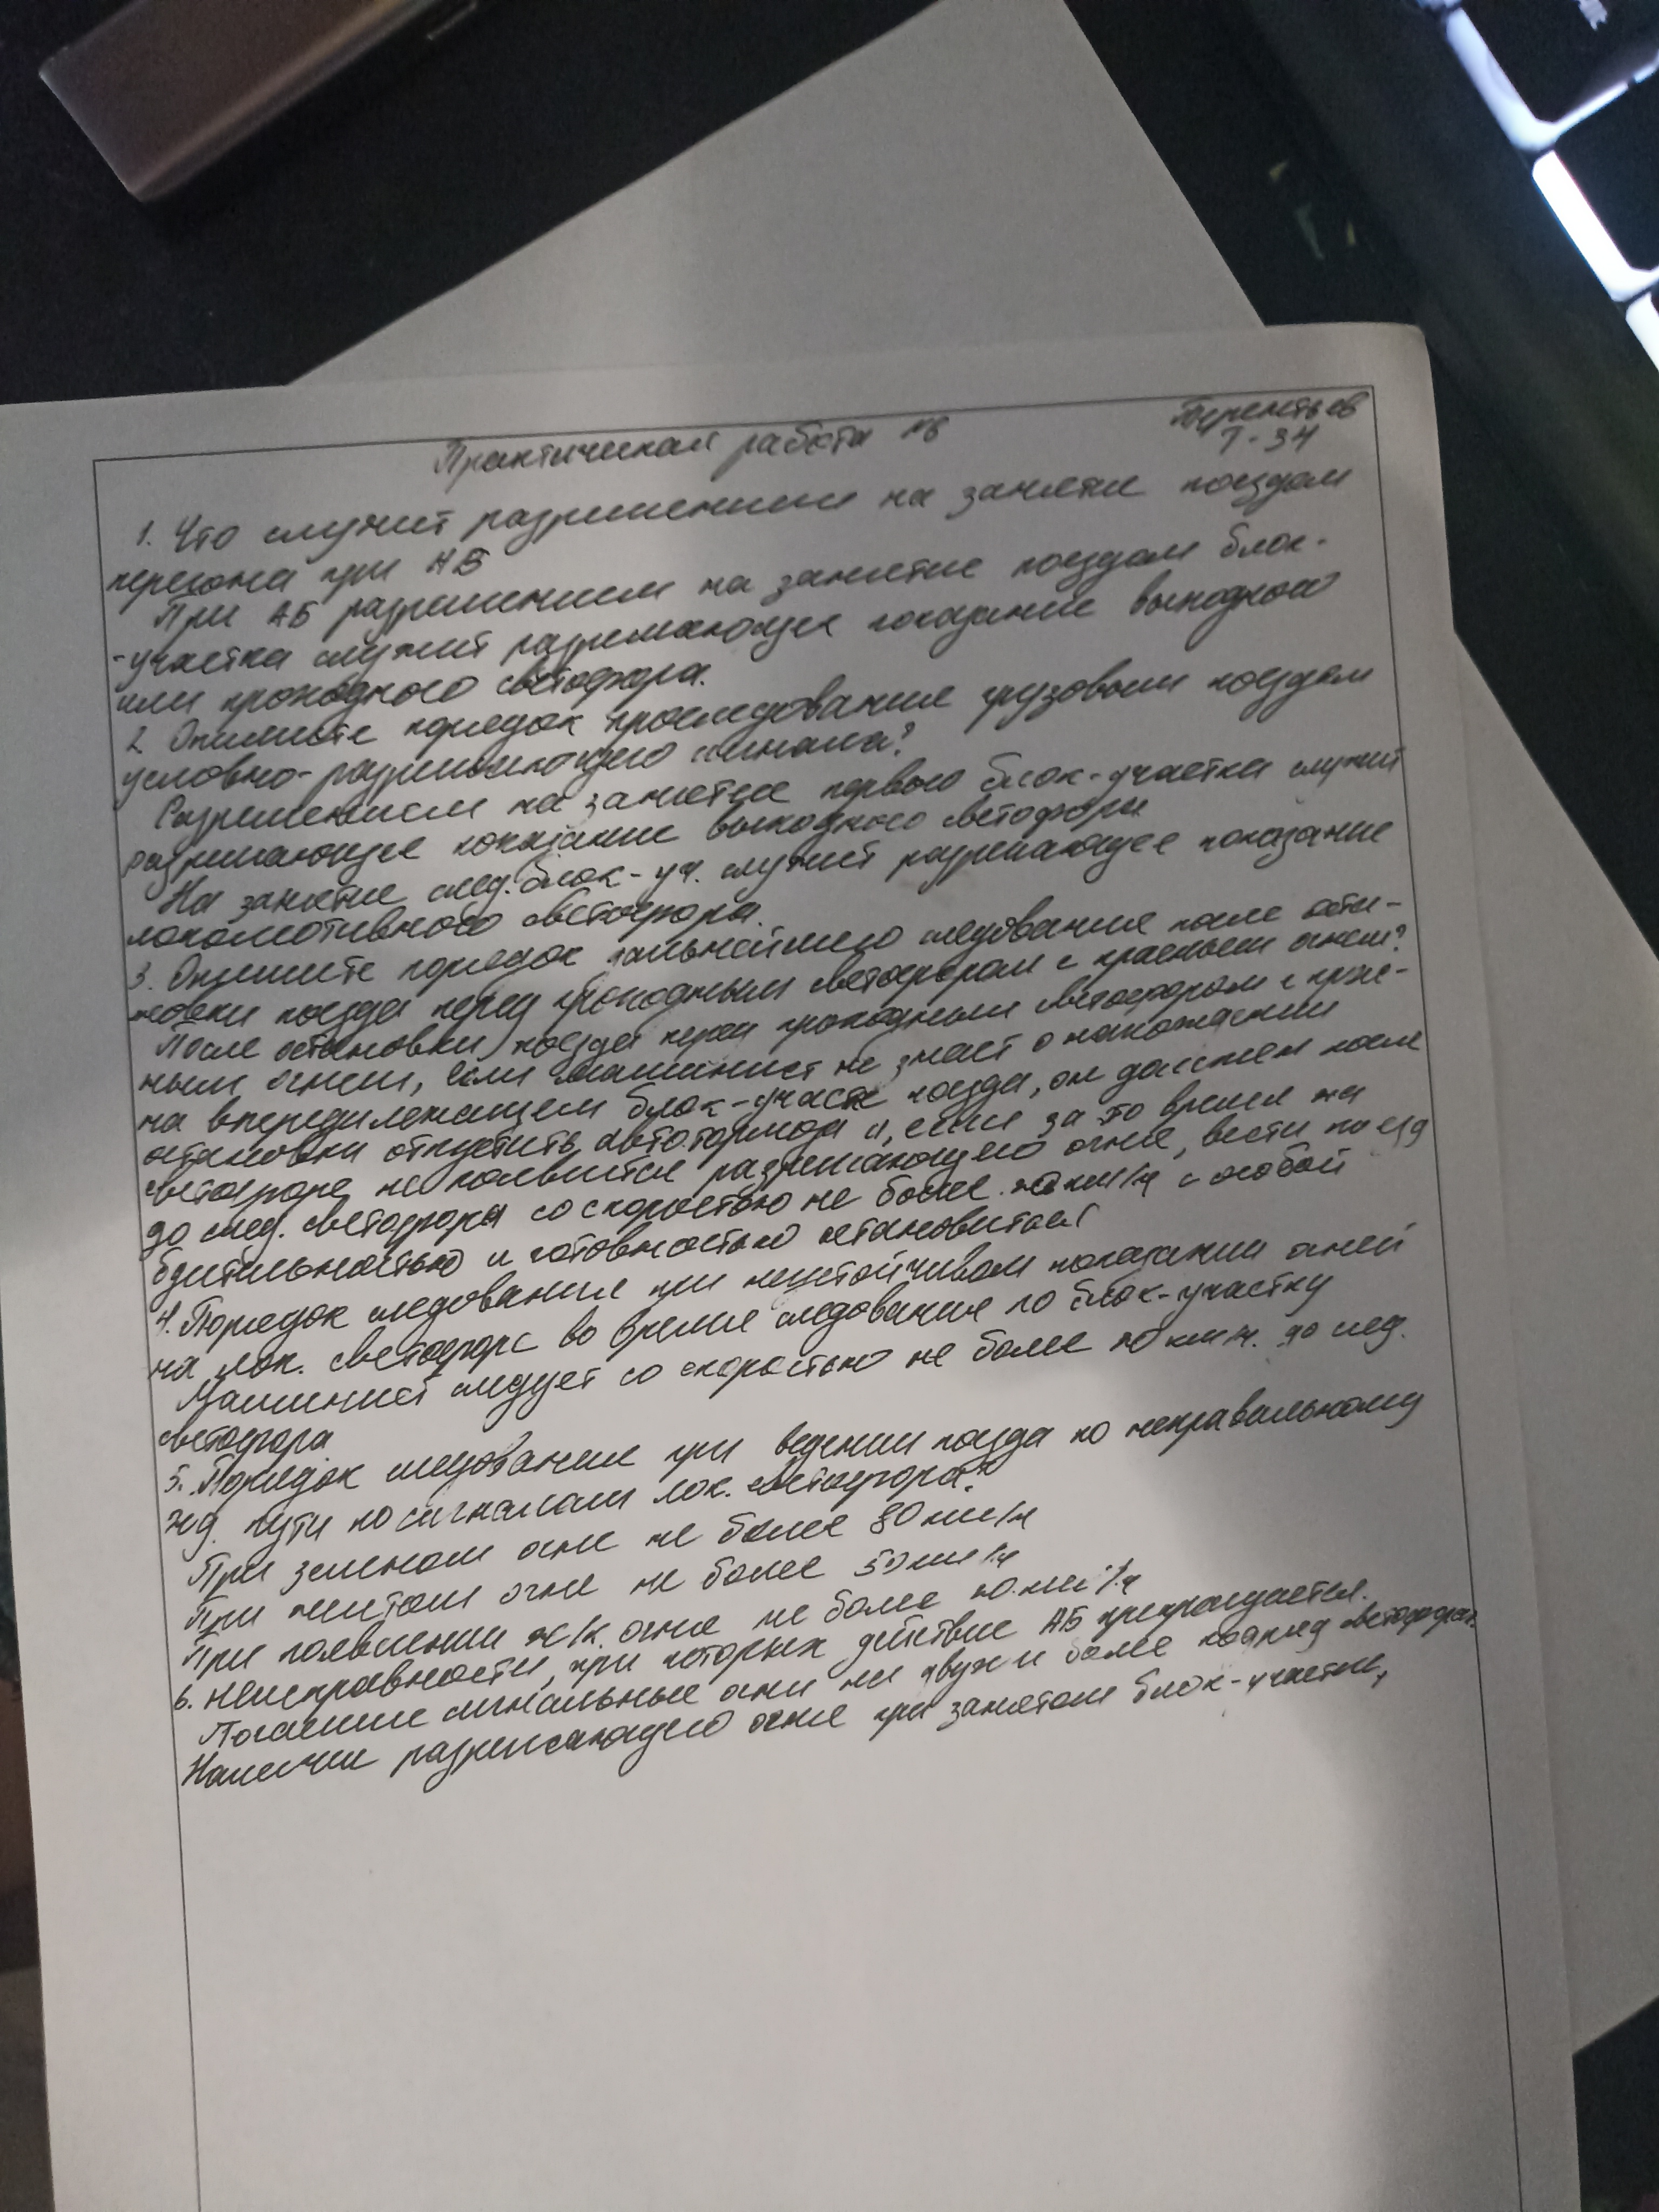 Практическая работа №6
Терентьев
Т-34
1. Что служит разрешением на занятие поездом
перегона при АБ
При АБ разрешением на занятие поездом блок-
-участка служит разрешающее показание выходного
или проходного светофора.
2. Опишите порядок проследования грузовым поездом
условно-разрешающего сигнала?
Разрешением на занятие первого блок-участка служит
разрешающее показание выходного светофора
На занятие след. блок-уч. служит разрешающее показание
локомотивного светофора.
3. Опишите порядок дальнейшего следования после оста-
новки поезда перед проходным светофором с красным огнем?
После остановки поезда перед проходным светофором с крас-
ным огнем, если машинист не знает о нахождении
на впередилежащем блок-участке поезда, он должен после
остановки отпустить автотормоза и, если за то время на
светофоре не появится разрешающего огня, вести поезд
до след. светофора со скоростью не более 20 км/ч с особой
бдительностью и готовностью остановиться
4. Порядок следования при неустойчивом показании огней
на лок. светофоре во время следования по блок-участку
Машинист следует со скоростью не более 40 км/ч. до след.
светофора
5. Порядок следования при ведении поезда по неправильному
жд. пути по сигналам лок. светофора?
При зеленом огне не более 80 км/ч
При желтом огне не более 50 км/ч
При появлении ж/к. огня не более 20 км/ч
6. Неисправности, при которых действие АБ прекращается.
Погасшие сигнальные огни на двух и более подряд светофорах.
Наличии разрешающего огня при занятом блок-участке,